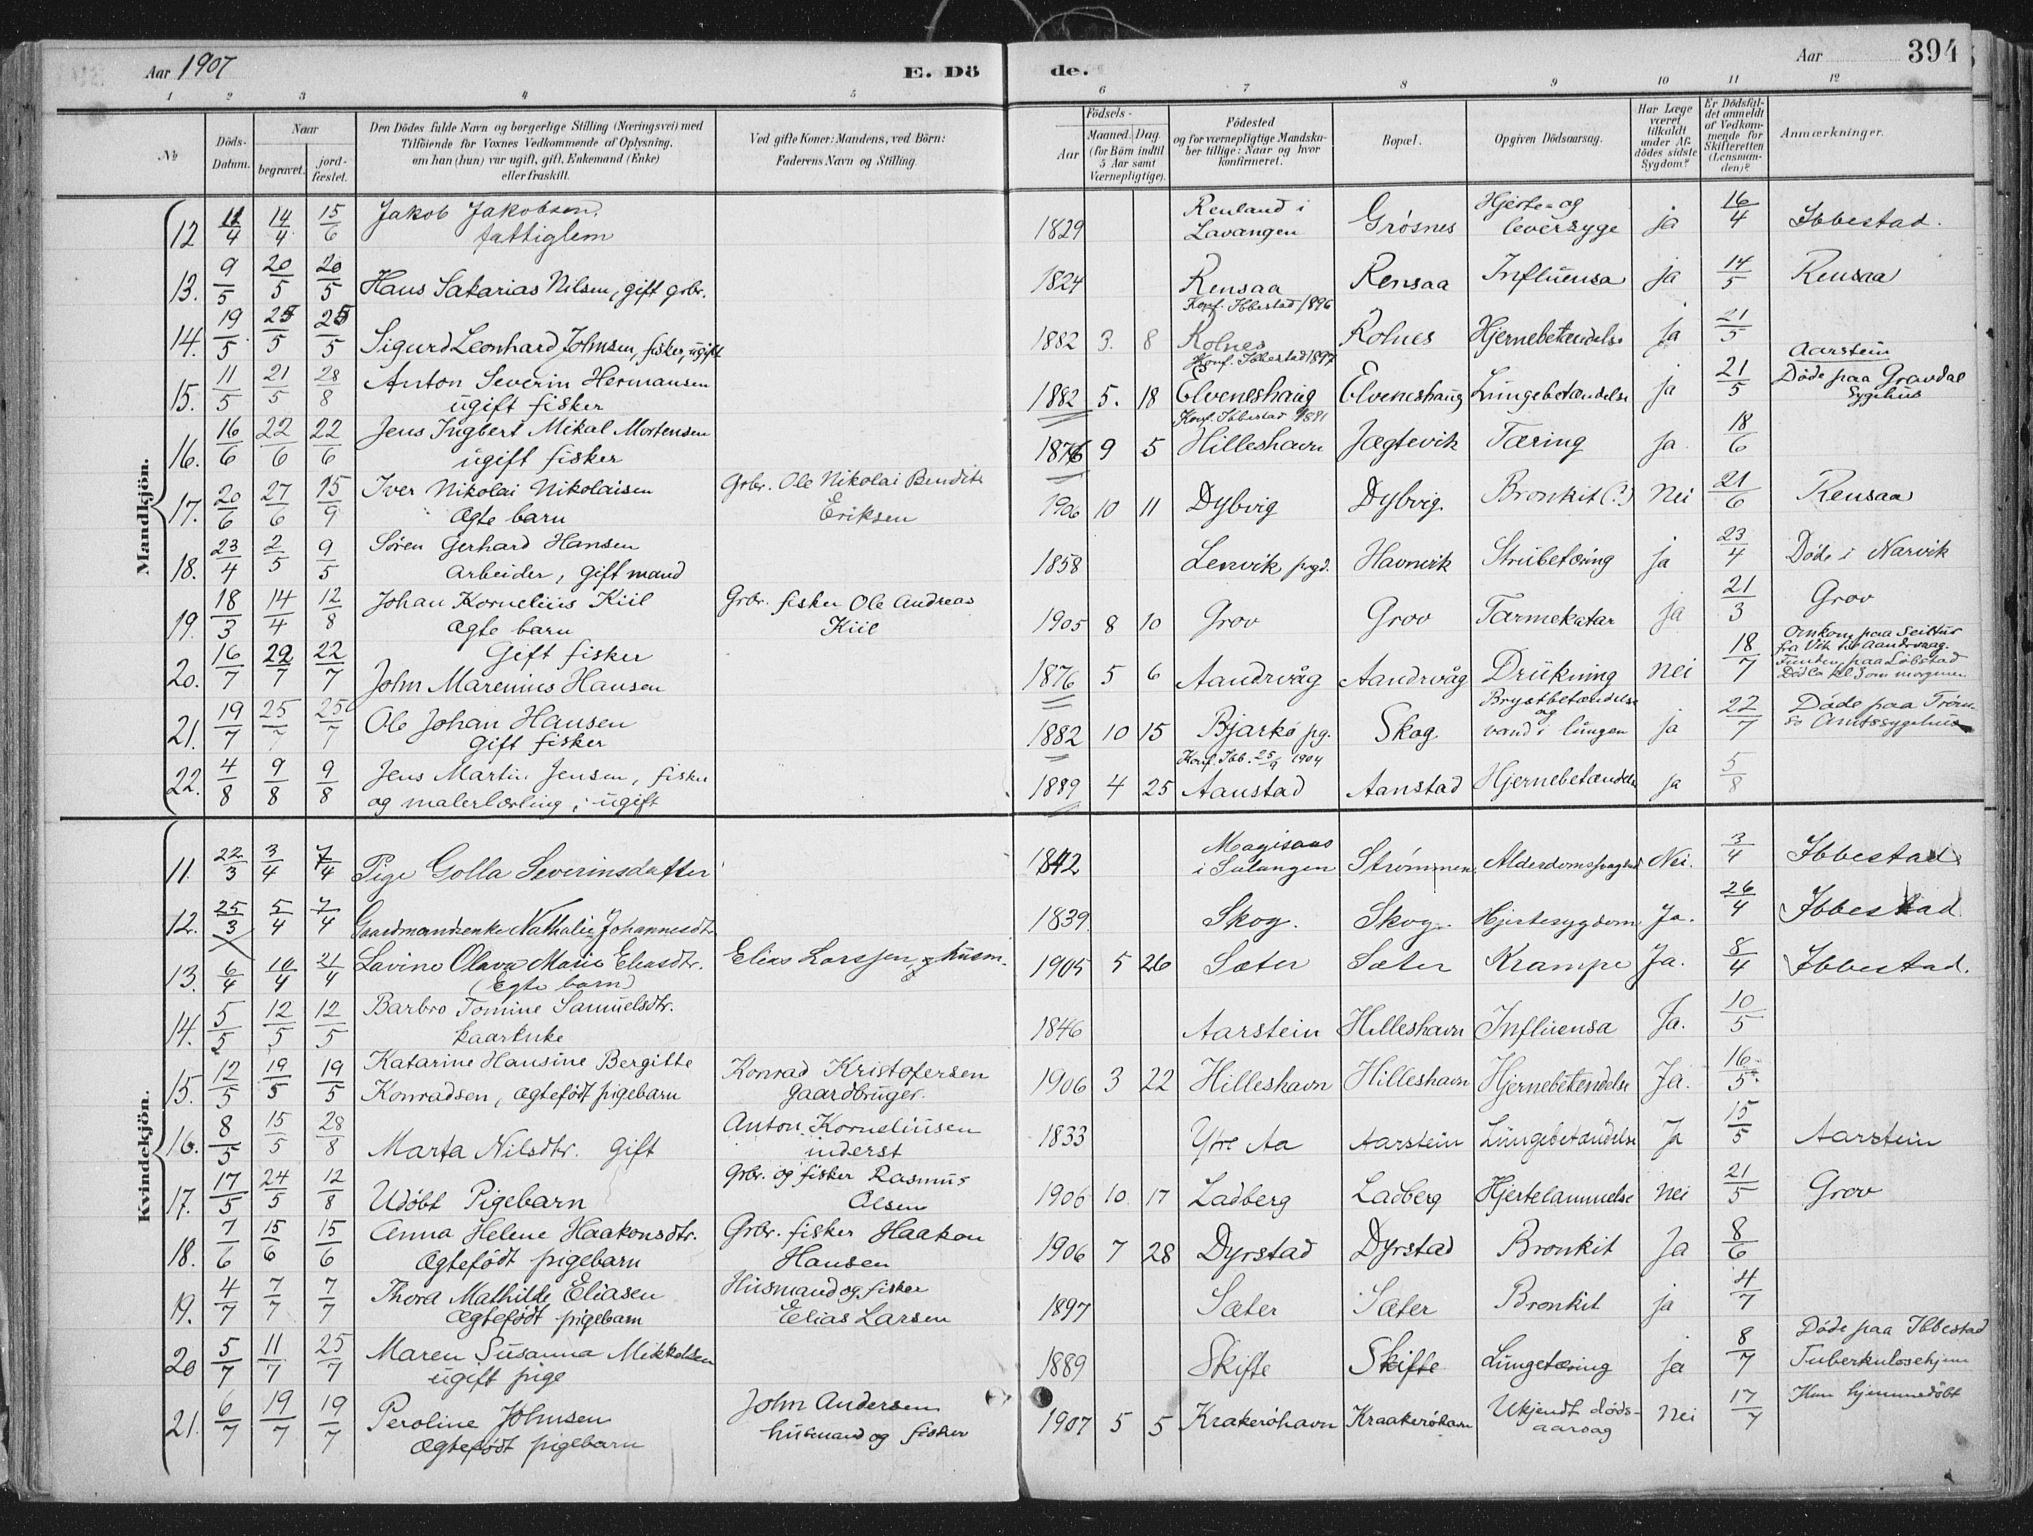 Aar 1907 E. Dö
de. Aar 394
1 2 3 4 5
6 7 8 9 10 11 12
No
Döds-Datum.
Naar
begravet. jord-fæstet.
Den Dödes fulde Navn og borgerlige Stilling (Næringsvei) med
Tilföiende for Voxnes Vedkommende af Oplysning,
om han (hun) var ugift, gift, Enkemand (Enke)
eller fraskilt.
Ved gifte Koner: Mandens, ved Börn:
Faderens Navn og Stilling.
Födsels-
Aar Maaned. Dag.
(for Börn indtil
5 Aar samt
Værnepligtige).
Födested
og for værnepligtige Mandska-
ber tillige: Naar og hvor
konfirmeret.
Bopæl.
Opgiven Dödsaarsag.
Har Læge
været
tilkaldt
under Af-
dödes sidste
Sygdom?
Er Dödsfal-
det anmeldt
af Vedkom-
mende for
Skifteretten
(Lensman-
den)?
Anmærkninger.
Mandkjön.
12 11/4 14/4 15/6 Jakob Jakobsen, fattiglem 1829 Renland i Lavangen Grøsnes Hjerte- og leversyge ja 16/4 Ibbestad.
13. 9/5 20/5 20/5 Hans Sakarias Nilsen, gift grbr. 1824 Rensaa Rensaa Influensa ja 14/5 Rensaa
14. 19/5 25/5 25/5 Sigurd Leonhard Johnsen, fisker, ugift 1882 3. 8 Konf. Ibbestad 1896 Rolnes Rolnes Hjernebetændelse ja 21/5
15. 11/5 21/5 28/8 Anton Severin Hermansen ugift fisker 1882 5. 18 Konf. Ibbestad 1897 Elveneshaug Elveneshaug Lungebetændelse ja 21/5 Aarstein Døde paa Gravdal Sygehus
16. 16/6 22/6 22/6 Jens Ingbert Mikal Mortensen ugift fisker 1876 9 5 Konf. Ibbestad 1891 Hilleshavn Jægtevik Tæring ja 18/6
17. 20/6 27/6 15/9 Iver Nikolai Nikolaisen Ægte barn Grbr. Ole Nikolai Bendik Eriksen 1906 10 11 Dybvig Dybvig. Bronkit (?) Nei 21/6 Rensaa
18. 23/4 2/5 9/5 Søren Gerhard Hansen Arbeider, gift mand 1858 Lenvik prgd. Havnvik Strubetæring ja 23/4 Døde i Narvik
19. 18/3 14/4 12/8 Johan Kornelius Kiil Ægte barn Grbr. fisker Ole Andreas Kiil 1905 8 10 Grov Grov Tarmekatar ja 21/3 Grov
20. 16/7 22/7 22/7 Gift fisker John Marenius Hansen 1876 5 6 Aandrvåg Aandrvåg Drukning nei 18/7 Omkom paa Seitur fra Vik til Aandrvaag. Funden paa Løbstad
21. 19/7 25/7 25/7 Ole Johan Hansen Gift fisker 1882 10 15 Bjarkø pg. Skog. Brystbetændelse og vand i lungen ja 22/7 Døde paa Tromsø Amtssygehus
22. 4/8 9/8 9/8 Jens Martin Jensen, fisker og malerlærling, ugift 1889 4 25 Konf. Ibb. 25/9 1904 Aanstad Aanstad Hjernebetændelse ja 5/8
Kvindekjön.
11. 22/3 3/4 7/4 Pige Golla Severinsdatter 1842 i Salangen Strømmen Nei. 3/4 Ibbestad
12. 25/3 5/4 7/4 Gaardmandsenke Nathalie Johannesdtr. 1839. Skog. Skog. Hjertesygdom Ja. 26/4 Ibbestad
13. 6/4 10/4 21/4 Lavine Olava Marie Eliasdtr. (Egte barn) Elias Larssen, husm. 1905 5 26 Sæter Sæter Krampe Ja. 8/4 Ibbestad.
14. 5/5 12/5 12/5 Barbro Tomine Samuelsdtr. kaarenke 1846 Aarstein Hilleshavn Influensa Ja. 10/5
15. 12/5 19/5 19/5 Katarine Hansine Bergitte Konradsen, ægtefødt pigebarn Konrad Kristofersen gaardbruger. 1906 3 22 Hilleshavn Hilleshavn Hjernebetændelse Ja. 16/5.
16. 8/5 15/5 28/8 Marta Nilsdtr. gift Anton Korneliusen inderst 1833 Ytre Aa Aarstein Lungebetændelse Ja 15/5 Aarstein
17. 17/5 24/5 12/8 Udøbt Pigebarn Grbr. og fisker Rasmus Olsen 1906 10. 17 Ladberg Ladberg Hjertelammelse nei 21/5 Grov
18. 7/6 15/6 15/6 Anna Helene Haakonsdtr. Ægtefødt pigebarn Grbr. fisker Haakon Hansen 1906 7 28 Dyrstad Dyrstad Bronkit Ja 8/6
19. 4/7 7/7 7/7 Thora Mathilde Eliasen Ægtefødt pigebarn Husmand og fisker Elias Larsen 1897 Sæter Sæter Bronkit ja 4/7
20 5/7 11/7 25/7 Maren Susanna Mikkelsen ugift pige 1889 Skifte Skifte Lungetæring ja 8/7 Døde paa Ibbestad Tuberkulosehjem
21. 6/7 19/7 19/7 Peroline Johnsen Ægtefødt pigebarn John Andersen husmand og fisker 1907 5 5 Krakerøhavn Kraakerøhavn Ukjendt dødsaarsag Nei 17/7 Kun hjemmedøbt